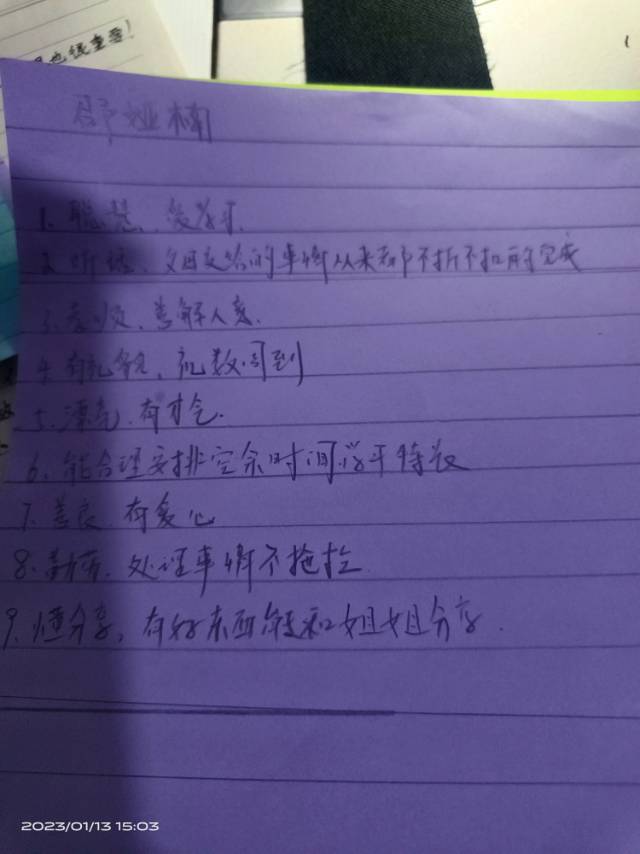 也很重要!
邵娅楠
1. 聪慧、爱学习.
2. 听话、父母交给的事情从来都不折不扣的完成
3. 孝顺、善解人意.
4. 有礼貌, 礼数周到
5. 漂亮、有才气.
6. 能合理安排空余时间学习特长
7. 善良、有爱心
8. 勤劳、处理事情不拖拉
9. 懂分享, 有好东西能和姐姐分享.
2023/01/13 15:03